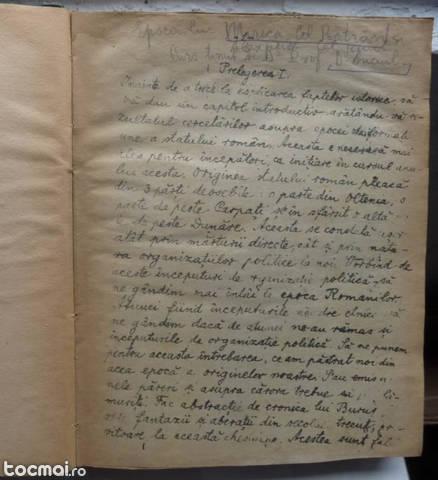 Epoca lui Mircea cel Bătrân
Curs ținut de Dl Prof.
Prelegerea I.
Înainte de a trece la explicarea faptelor istorice, să
vă dau un capitol introductiv arătându-vă re-
zultatul cercetărilor asupra epocei de formați-
une a statului român. Aceasta e necesară mai
ales pentru începători, ca inițiere în cursul anu-
lui acesta. Originea statului român pleacă
din 3 părți deosebite: o parte din Oltenia, o
parte de peste Carpați și în sfârșit o altă
de peste Dunăre. Aceasta se constată
atât prin mărturii directe, cât și prin natu-
ra organizațiilor politice la noi. Vorbind de
aceste începuturi de organizație politică, să
ne gândim mai întâi la epoca Romanilor.
Atunci fiind începuturile noastre etnice, să
ne gândim dacă de atunci ne-au rămas și
începuturile de organizație politică. Să ne punem
pentru aceasta întrebarea, ce am păstrat noi din
acea epocă a originelor noastre. S'au emis u-
nele păreri și asupra cărora trebue să
murită. Fac abstracție de cronica lui Burus
fantazii și aberații din secolul trecut,
ritoare la această chestiune. Acestea sunt fal
tocmai.ro